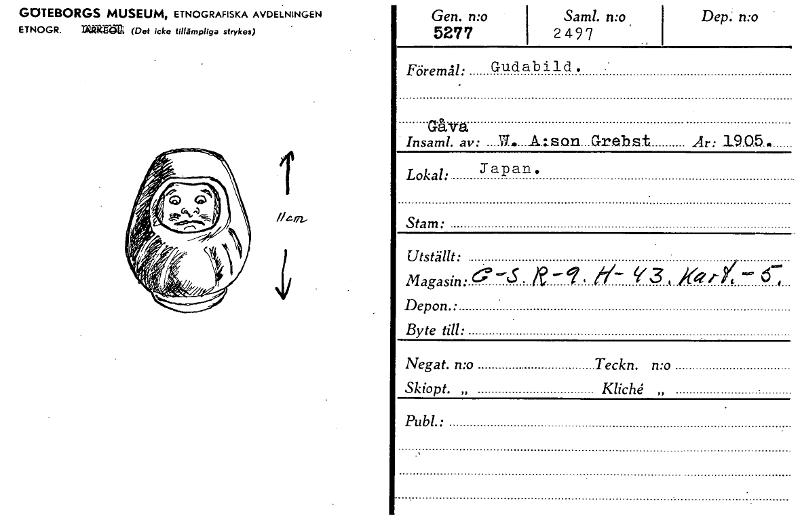 GÖTEBORGS MUSEUM, ETNOGRAFISKA AVDELNINGEN
ETNOGR. ARKEOL. (Det icke tillämpliga strykes)
11cm
Gen. n:o Saml. n:o Dep. n:o
5277 2497
Föremål: Gudabild.
Gåva
Insaml. av: W. A:son Grebst År: 1905.
Lokal: Japan.
Stam:
Utställt:
Magasin: G-S. R-9. H-43. Kart.-5.
Depon.:
Byte till:
Negat. n:o Teckn. n:o
Skiopt. „ Kliché „
Publ.: